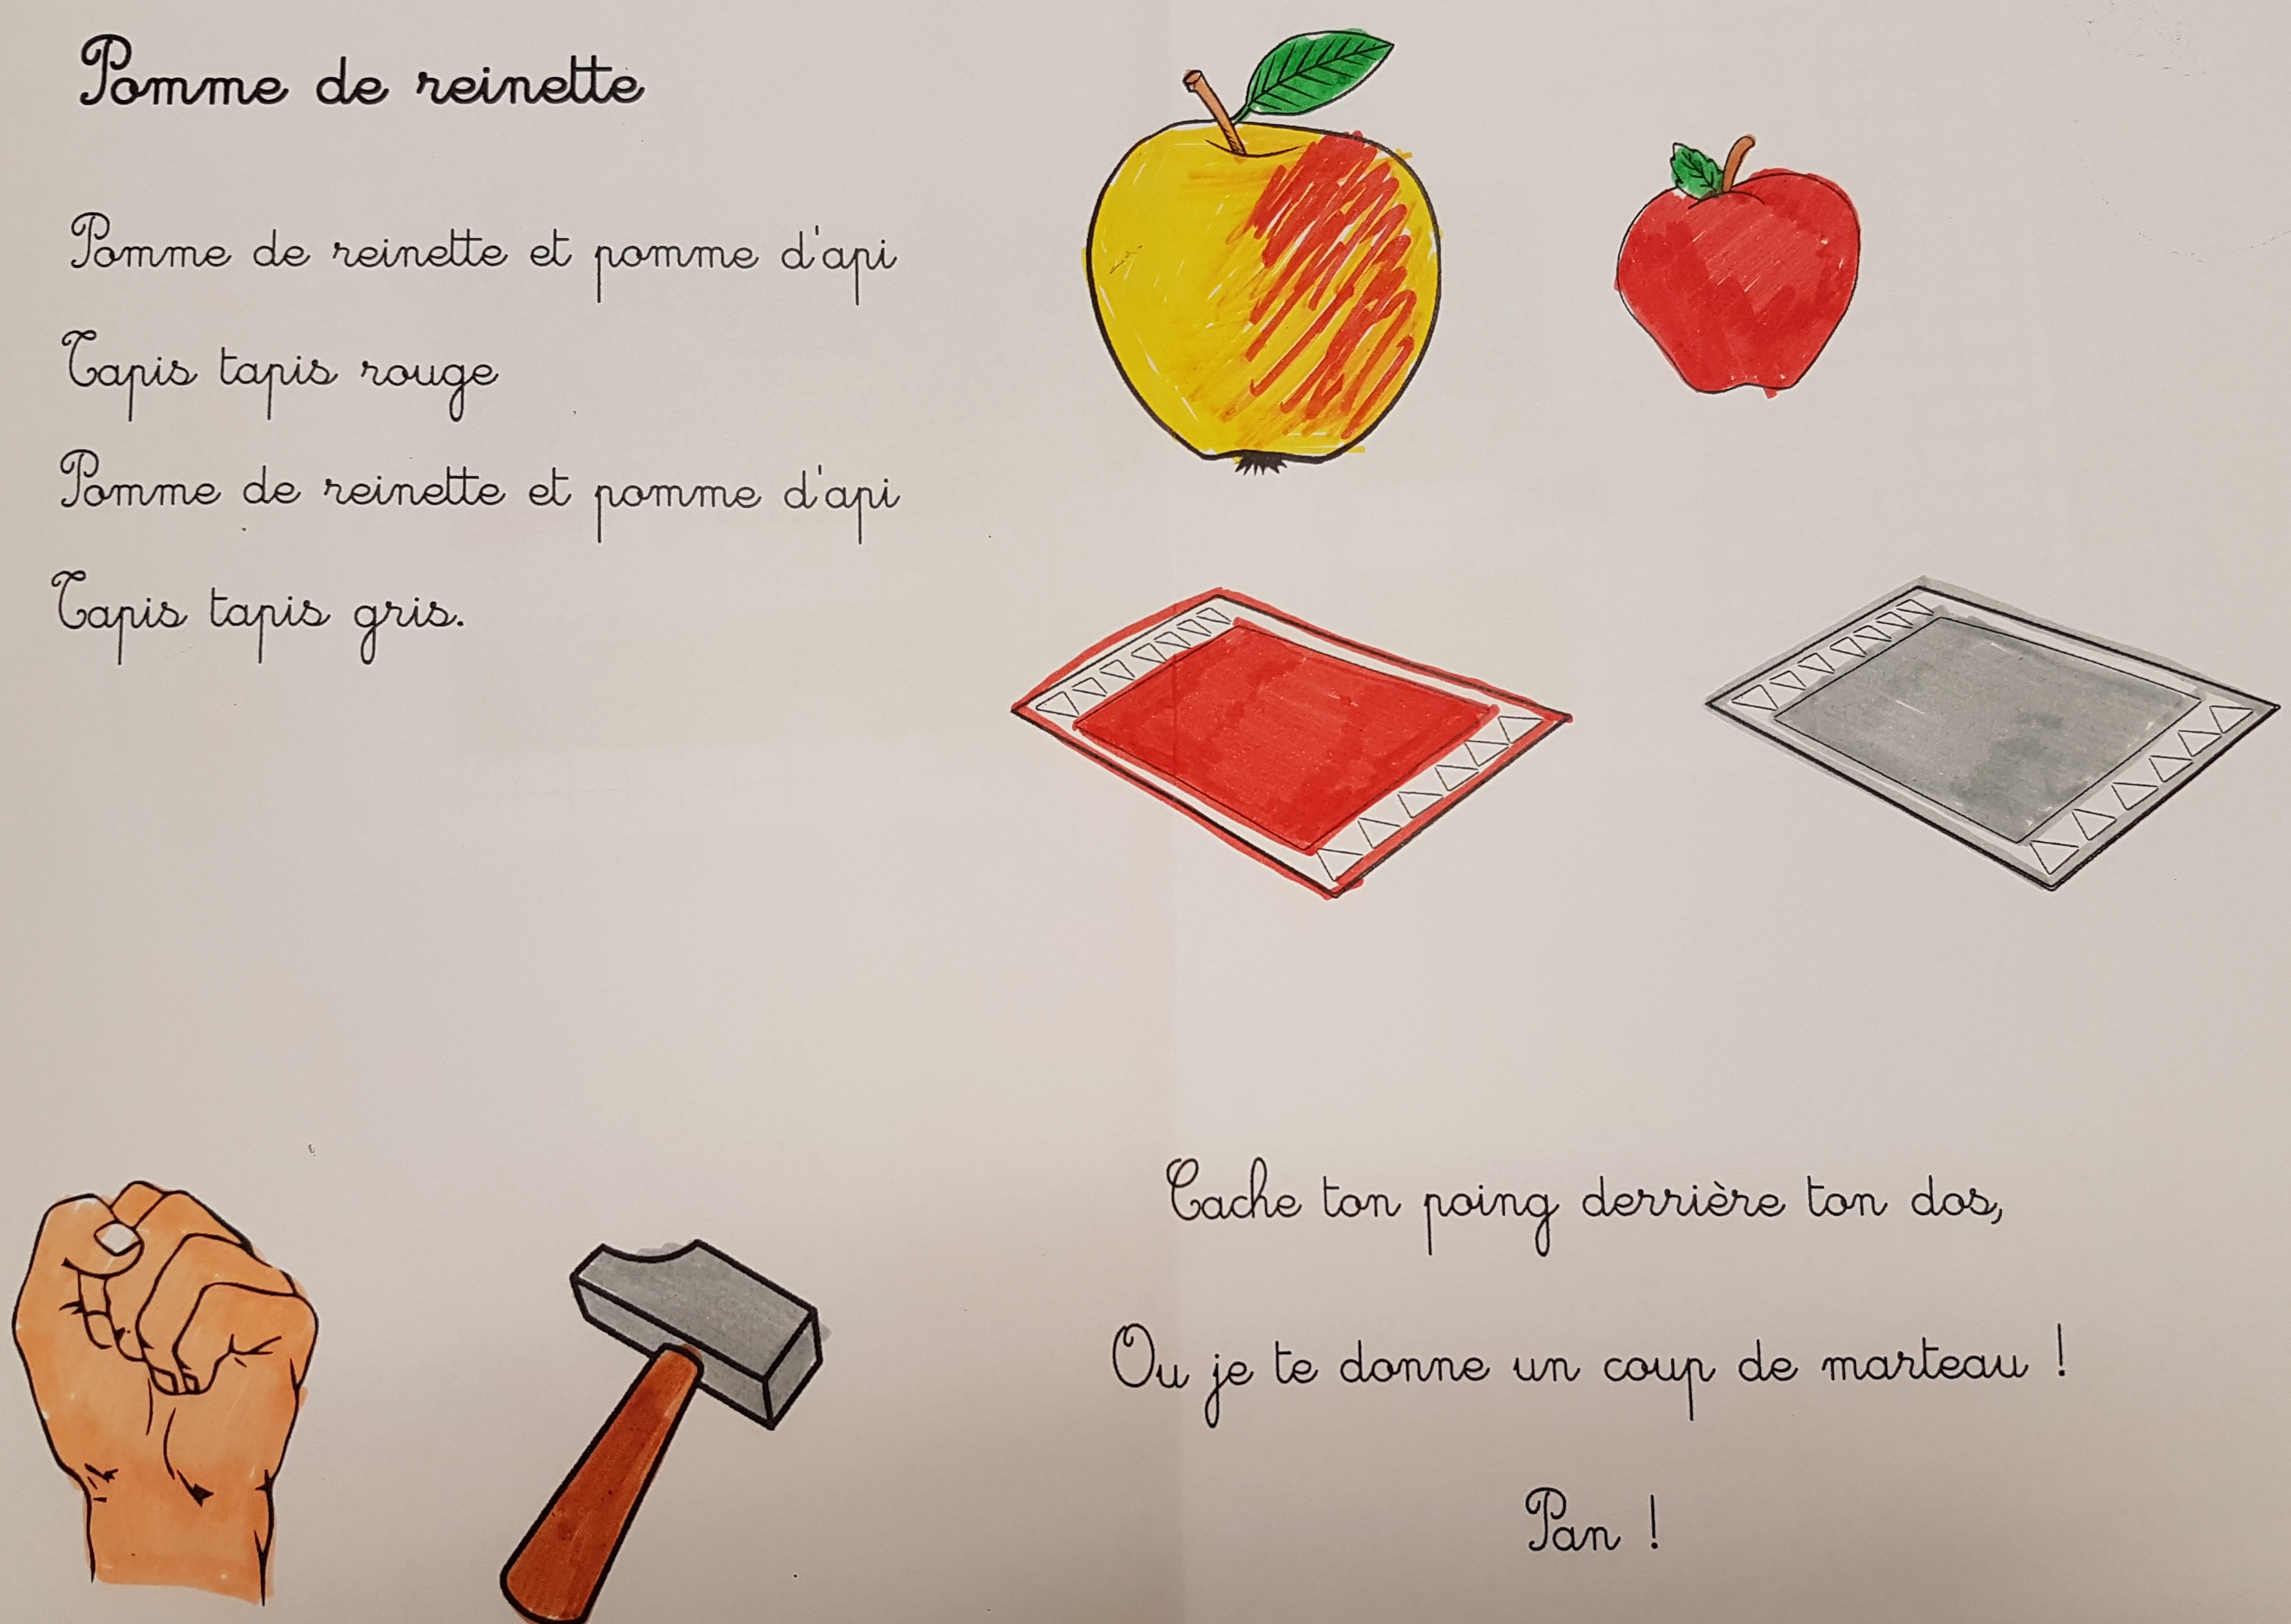 Pomme de reinette
Pomme de reinette et pomme d'api
Tapis tapis rouge
Pomme de reinette et pomme d'api
Tapis tapis gris.
Cache ton poing derrière ton dos,
Ou je te donne un coup de marteau !
Pan !